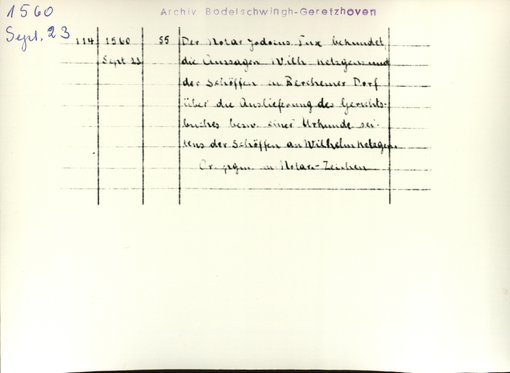 1560
Sept. 23
Archiv Bodelschwingh-Geretzhoven
114 1560 55 Der Notar Jodocus Fux bekundet
Sept 23 die Aussagen Wilh. Metzgens und
der Schöffen in Berchemer Dorf
über die Auslieferung des Gerichts-
buches bezw. einer Urkunde sei-
tens der Schöffen an Wilhelm Metzgen.
Or. prgm. m. Notar-Zeichen